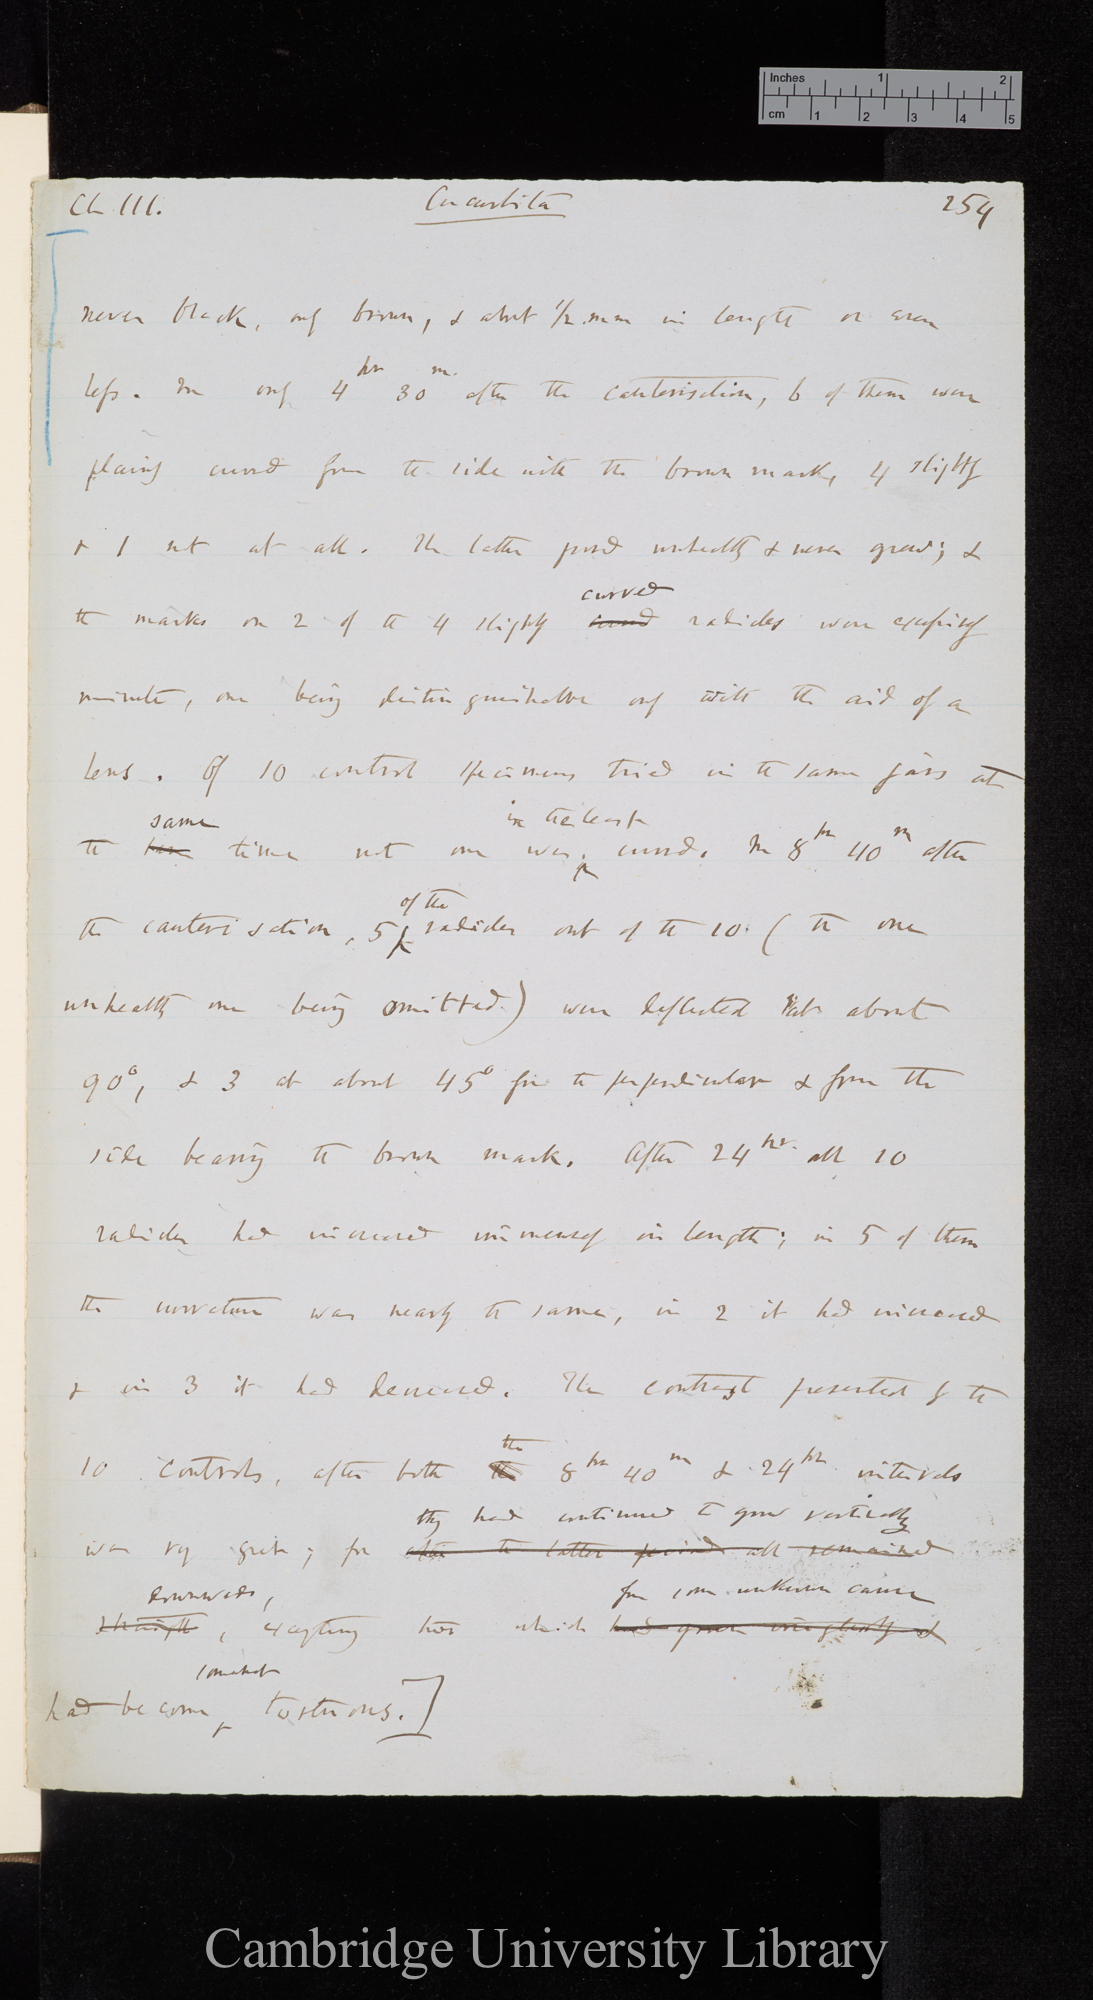 Inches 1 2
cm 1 2 3 4 5
Ch III. Cucurbita 254
never black, only brown, & about 1/2 mm in length or even
less. In only 4 hr 30 m. after the cauterisation, 6 of them were
plainly curved from the side with the brown mark, 4 slightly
& 1 not at all. The latter proved unhealthy & never grew; &
curved
the marks on 2 of the 4 slightly curved radicles were excessively
minute, one being distinguishable only with the aid of a
lens. Of 10 control specimens tried in the same jars at
same in the least
the time not one was curved. In 8 hr 40 m after
of the
the cauterisation, 5 radicles out of the 10 (the one
unhealthy one being omitted) were deflected at about
90°, & 3 at about 45° from the perpendicular & from the
side bearing the brown mark. After 24 hr. all 10
radicles had increased immensely in length; in 5 of them
the curvature was nearly the same, in 2 it had increased
& in 3 it had decreased. The contrast presented by the
the
10 controls, after both the 8 hr 40 m & 24 hr intervals
they had continued to grow vertically
was very great; for after the latter period all remained
downwards, from some unknown cause
straight, excepting two which had grown &
somewhat
had become tortuous.]
Cambridge University Library